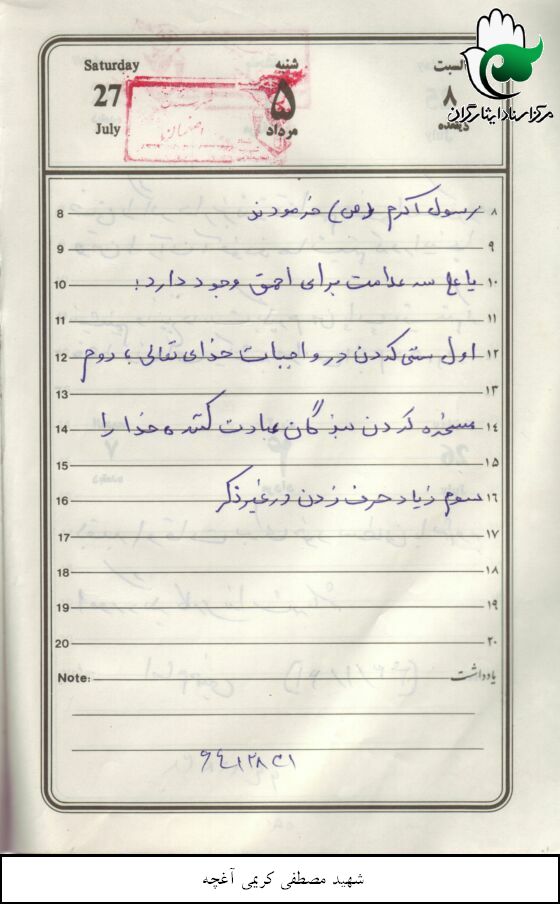 Saturday
27
July
شنبه
۵
مرداد
السبت
۸
ذیقعده
مرکز اسناد ایثارگران
اصفهان
8 رسول اکرم (ص) فرمودند ۸
9 ۹
10 یا علی سه علامت برای احمق وجود دارد: ۱۰
11 ۱۱
12 اول سستی کردن در واجبات خدای تعالی ؛ دوم ۱۲
13 ۱۳
14 مسخره کردن بندگان عبادت کننده خدا را ۱۴
15 ۱۵
16 سوم زیاد حرف زدن در غیر ذکر ۱۶
17 ۱۷
18 ۱۸
19 ۱۹
20 ۲۰
Note: یادداشت
شهید مصطفی کریمی آغچه